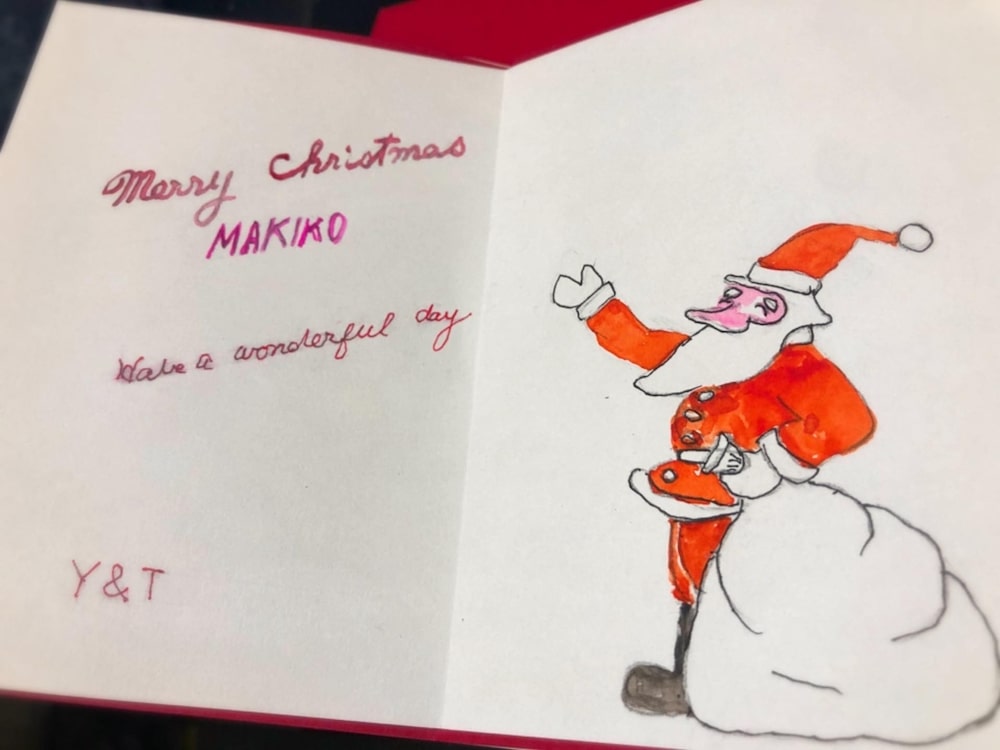 Merry Christmas
MAKIKO
Have a wonderful day
Y & T